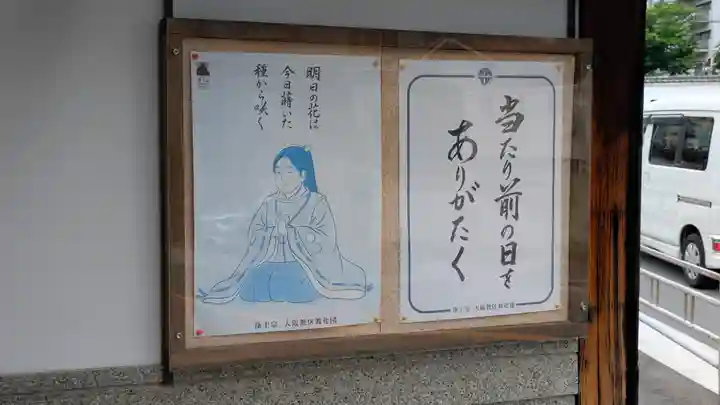 明日の花は
今日蒔いた
種から咲く
浄土宗 大阪教区教化団
当たり前の日を
ありがたく
浄土宗 大阪教区教化団